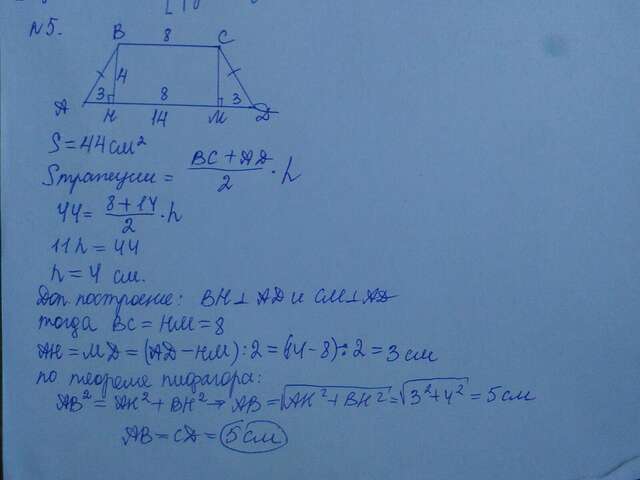 N5.
B 8 C
4
A 3 H 8 M 3 D
14
S = 44 см²
Sтрапеции = (BC + AD)/2 · h
44 = (8 + 14)/2 · h
11h = 44
h = 4 см.
Доп. построение: BH ⊥ AD и CM ⊥ AD
тогда BC = HM = 8
AH = MD = (AD - HM) : 2 = (14 - 8) : 2 = 3 см
по теореме пифагора:
AB² = AH² + BH² → AB = √(AH² + BH²) = √(3² + 4²) = 5 см
AB = CD = 5 см